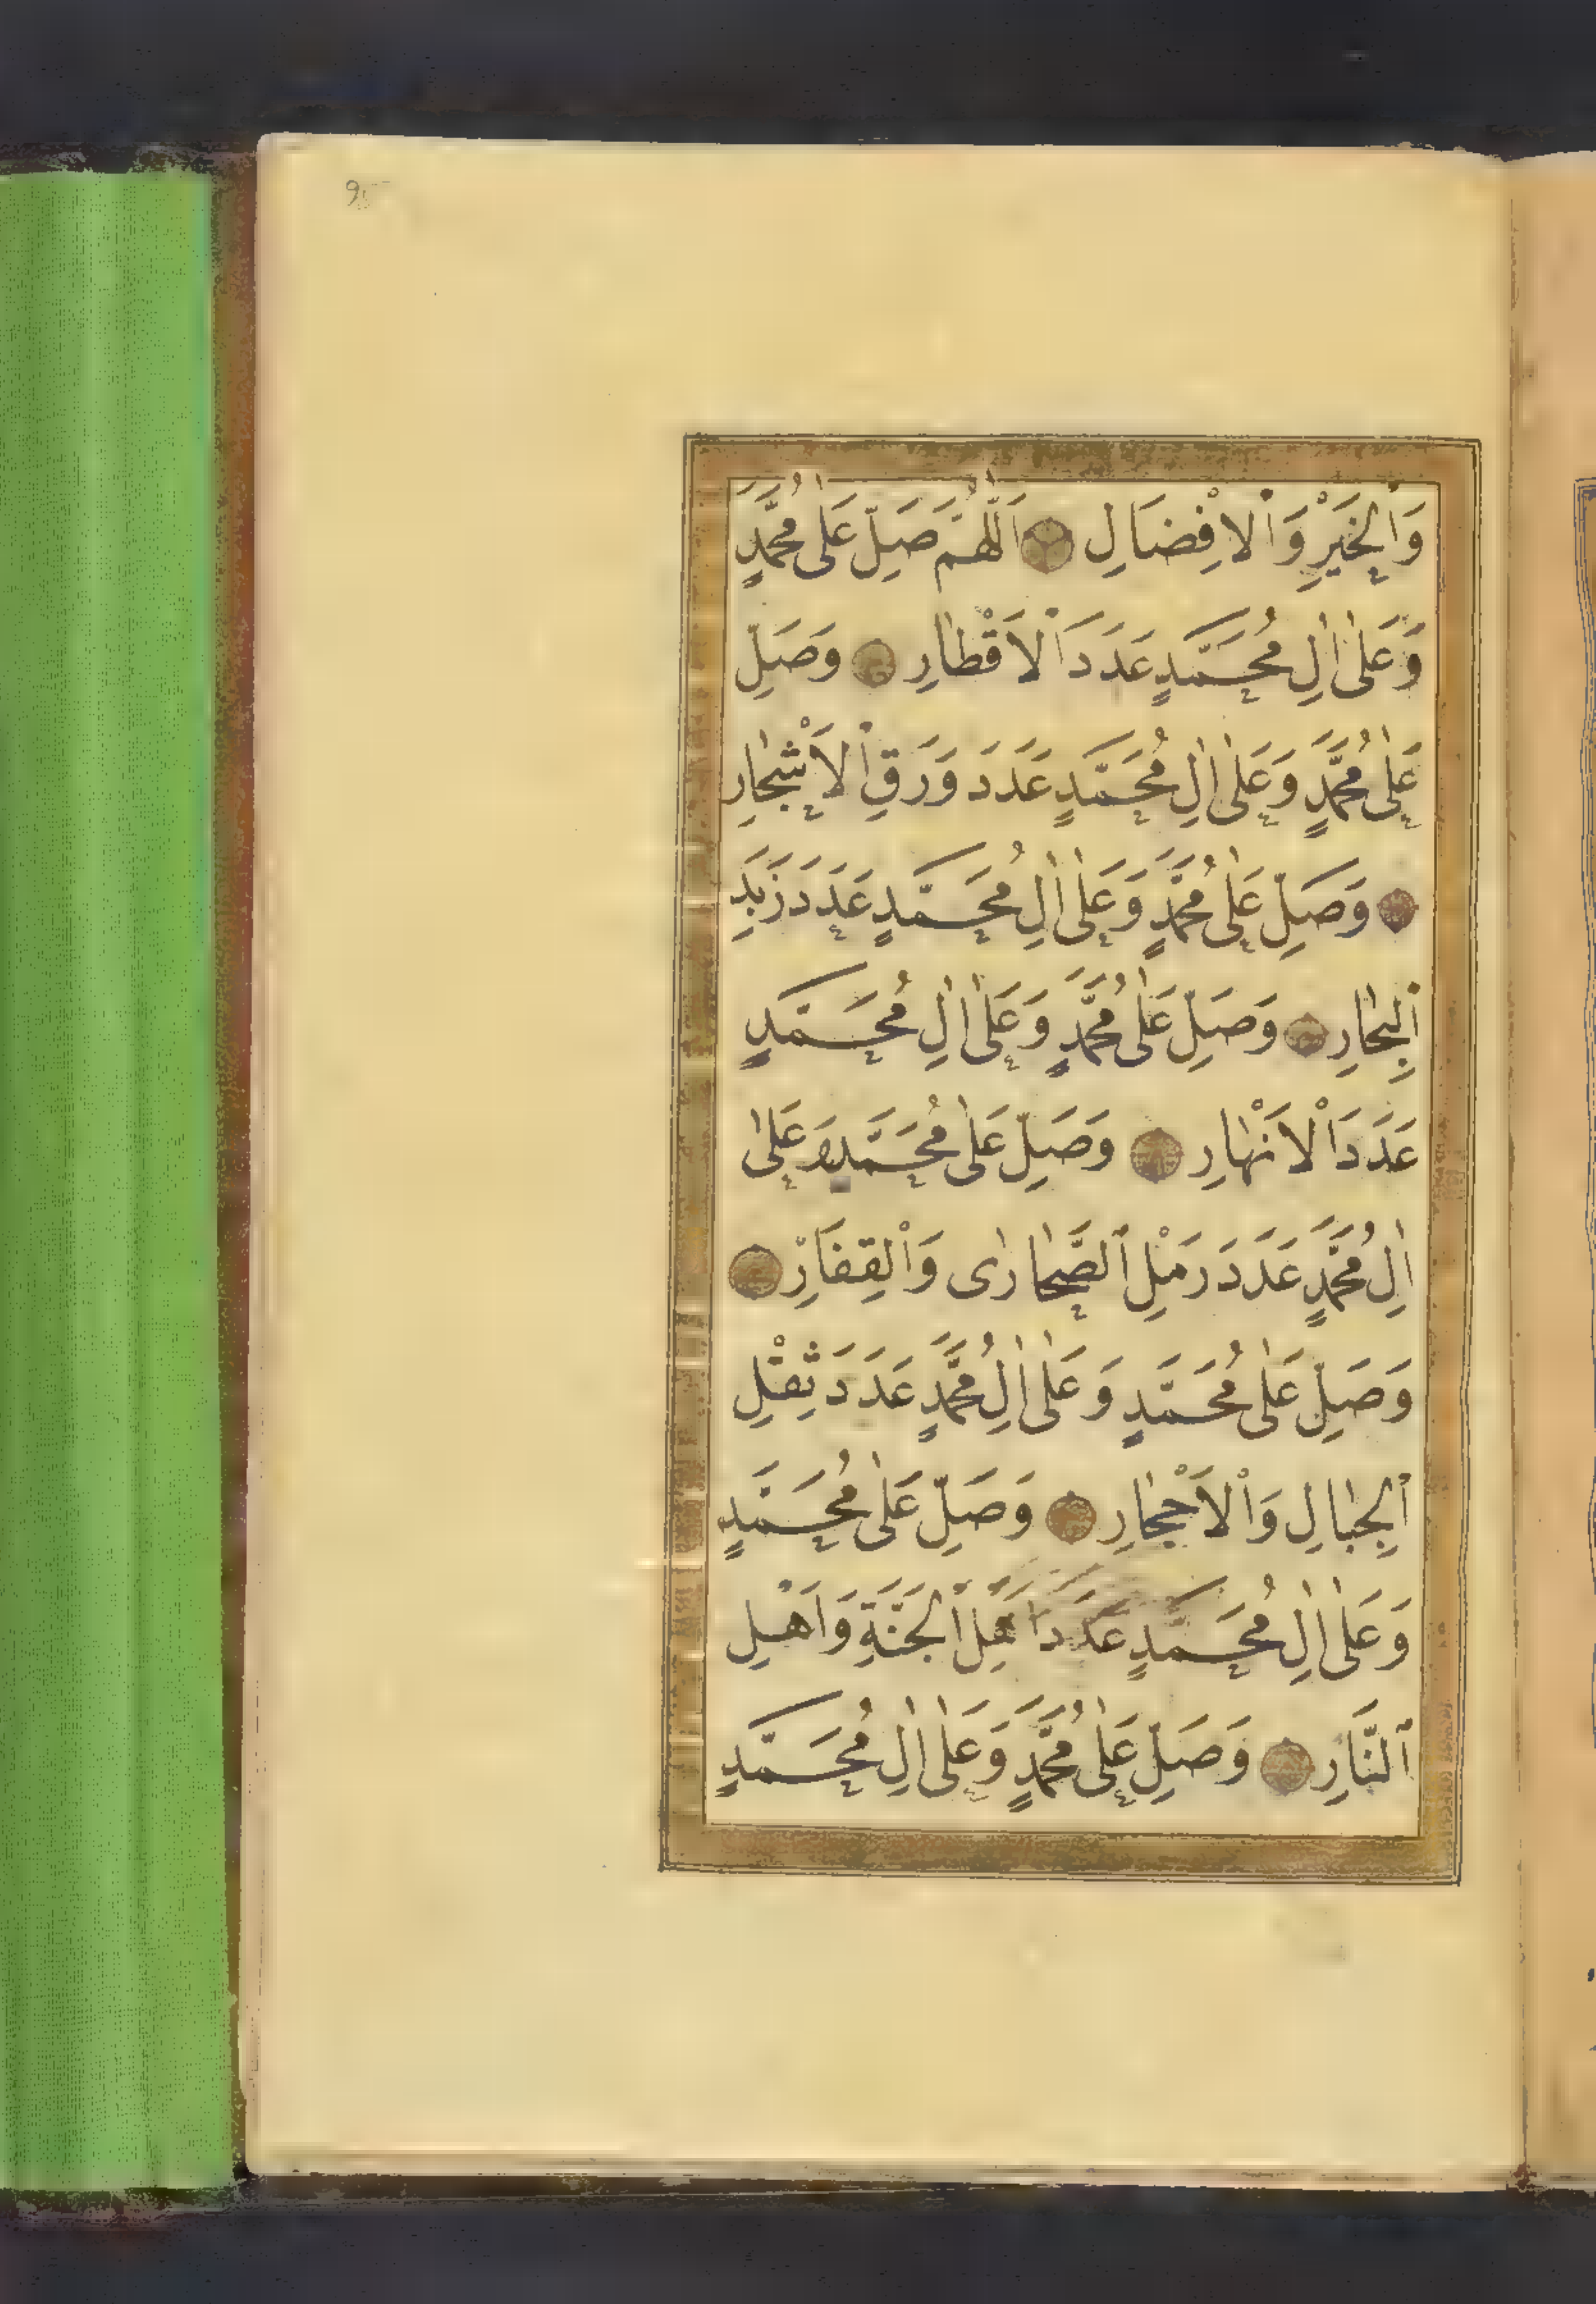 95
وَالْخَيْرِ وَالْاِفْضَالِ اَللّٰهُمَّ صَلِّ عَلٰى مُحَمَّدٍ
وَعَلٰى اٰلِ مُحَمَّدٍ عَدَدَ الْاَقْطٰارِ وَصَلِّ
عَلٰى مُحَمَّدٍ وَعَلٰى اٰلِ مُحَمَّدٍ عَدَدَ وَرَقِ الْاَشْجٰارِ
وَصَلِّ عَلٰى مُحَمَّدٍ وَعَلٰى اٰلِ مُحَمَّدٍ عَدَدَ زَبَدِ
الْبِحٰارِ وَصَلِّ عَلٰى مُحَمَّدٍ وَعَلٰى اٰلِ مُحَمَّدٍ
عَدَدَ الْاَنْهٰارِ وَصَلِّ عَلٰى مُحَمَّدٍ وَعَلٰى
اٰلِ مُحَمَّدٍ عَدَدَ رَمْلِ الصَّحٰارٰى وَالْقِفَارِ
وَصَلِّ عَلٰى مُحَمَّدٍ وَعَلٰى اٰلِ مُحَمَّدٍ عَدَدَ ثِقْلِ
الْجِبٰالِ وَالْاَحْجٰارِ وَصَلِّ عَلٰى مُحَمَّدٍ
وَعَلٰى اٰلِ مُحَمَّدٍ عَدَدَ اَهْلِ الْجَنَّةِ وَاَهْلِ
النَّارِ وَصَلِّ عَلٰى مُحَمَّدٍ وَعَلٰى اٰلِ مُحَمَّدٍ